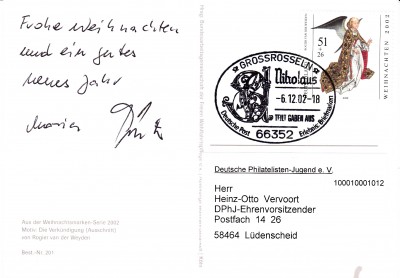 Frohe Weihnachten
und ein gutes
neues Jahr
GROSSROSSELN
Nikolaus
-6.12.02-18
TEILT GABEN AUS
Deutsche Post Erlebnis: Briefmarken
66352
51
+26
WEIHNACHTEN 2002
Aus der Weihnachtsmarken-Serie 2002
Motiv: Die Verkündigung (Ausschnitt)
von Rogier van der Weyden
Best.-Nr. 201
Deutsche Philatelisten-Jugend e. V.
100010001012
Herr
Heinz-Otto Vervoort
DPhJ-Ehrenvorsitzender
Postfach 14 26
58464 Lüdenscheid